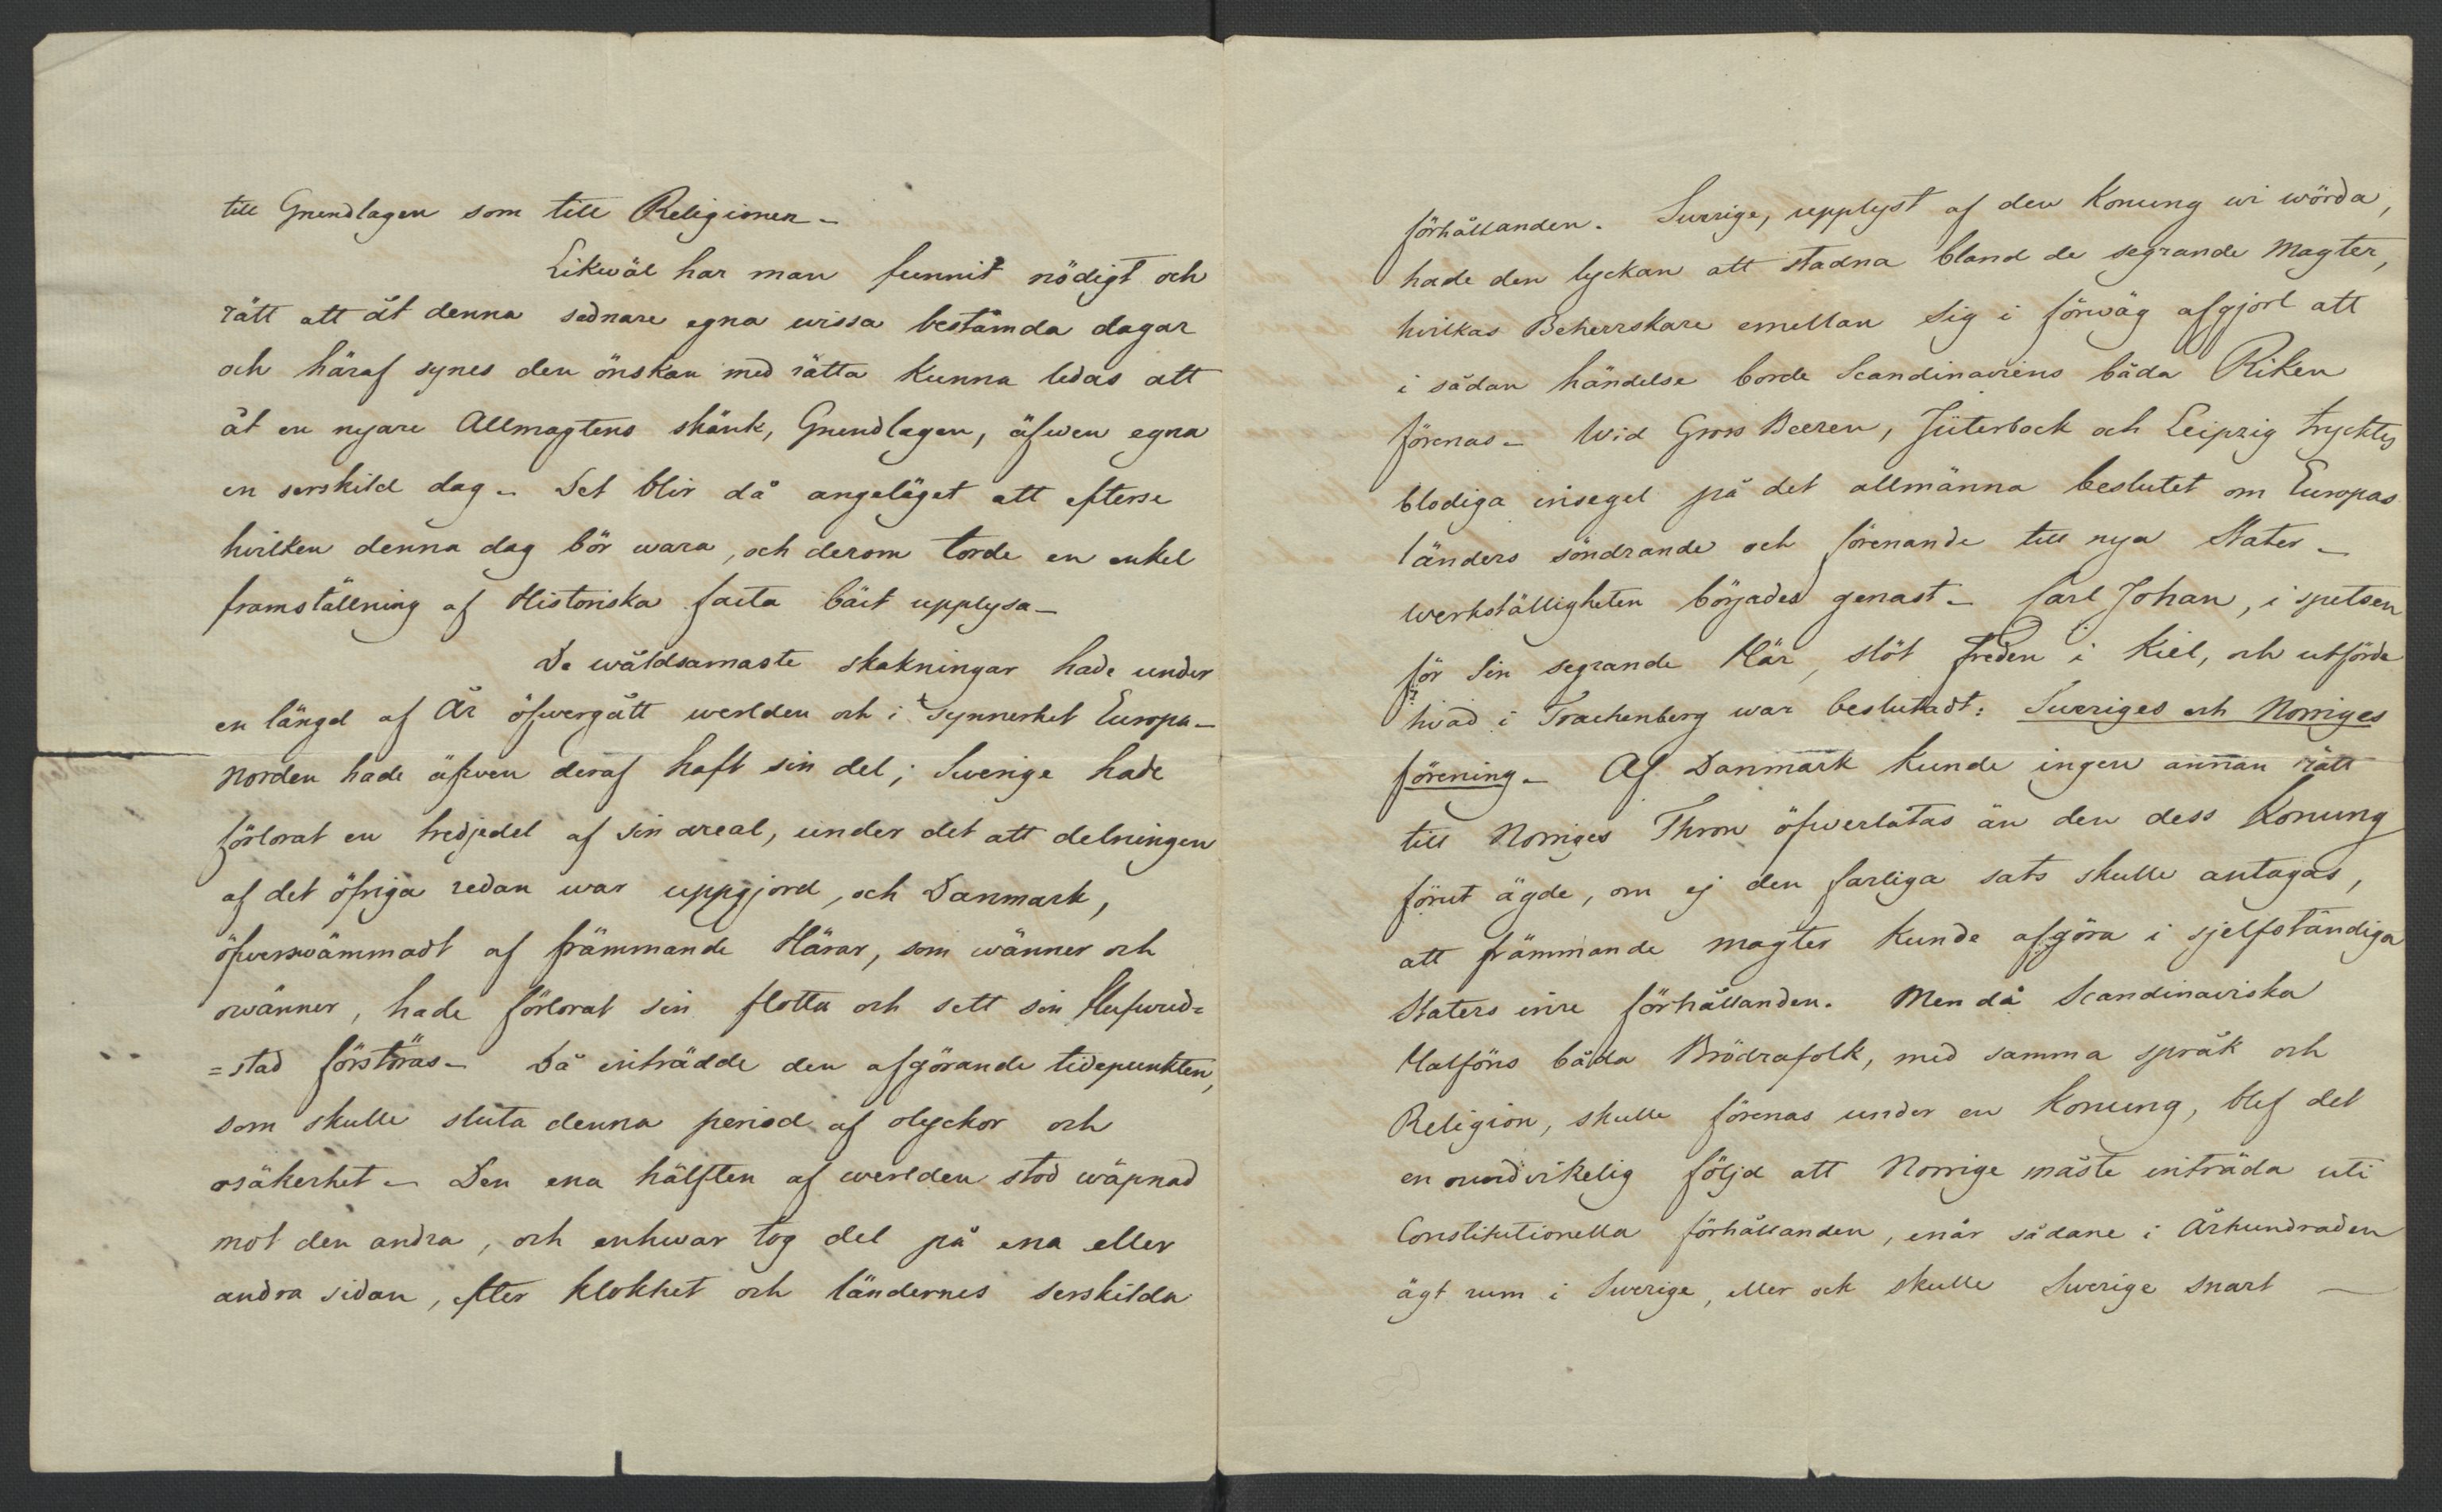 till Grundlagen som till Religionen –
Likwäl har man funnit nödigt och
rätt att åt denna sednare egna wissa bestämda dagar
och häraf synes den önskan med rätta kunna ledas att
åt en nyare Allmagtens skänk, Grundlagen, äfwen egna
en serskild dag – Det blir då angeläget att efterse
hvilken denna dag bör wara, och derom torde en enkel
framställning af Historiska facta bäst upplysa –
De wåldsamaste skakningar hade under
en längd af År öfwergått werlden och i Synnerhet Europa –
Norden hade äfwen deraf haft sin del; Swerige hade
förlorat en tredjedel af sin areal, under det att delningen
af det öfriga redan war uppgjord, och Danmark,
öfverswämmadt af främmande Härar, som wänner och
owänner, hade förlorat sin flotta och sett sin Hufwud=
=stad förstöras – Då inträdde den afgörande tidepunkten,
som skulle sluta denna period af olyckor och
osäkerhet – Den ena hälften af werlden stod wäpnad
mot den andra, och enhwar tog del på ena eller
andra sidan, efter klokhet och ländernes serskilda
förhållanden. Swerige, upplyst af den Konung wi wörda,
hade den lyckan att stadna bland de segrande Magter,
hvilkas Beherrskare emellan Sig i förwäg afgjort att
i sådan händelse borde Scandinaviens båda Riken
förenas – Wid Gross Beeren, Jüterbock och Leipzig trycktes
blodiga insegel på det allmänna beslutet om Europas
länders söndrande och förenande till nya Stater –
Werkställigheten börjades genast – Carl Johan, i spetsen
för Sin segrande Här, slöt freden i Kiel, och utförde
hvad i Trachenberg war beslutadt: Sweriges och Norriges
förening – Af Danmark kunde ingen annan rätt
till Norriges Thron öfwerlåtas än den dess Konung
förut ägde, om ej den farliga sats skulle antagas,
att främmande magter kunde afgöra i sjelfständiga
Staters inre förhållanden. Men då Scandinaviska
Halföns båda Brödrafolk, med samma språk och
Religion, skulle förenas under en Konung, blef det
en oundvikelig följd att Norrige måste inträda uti
Constitutionella förhållanden, enär sådane i Århundraden
ägt rum i Swerige, eller ock skulle Swerige snart —